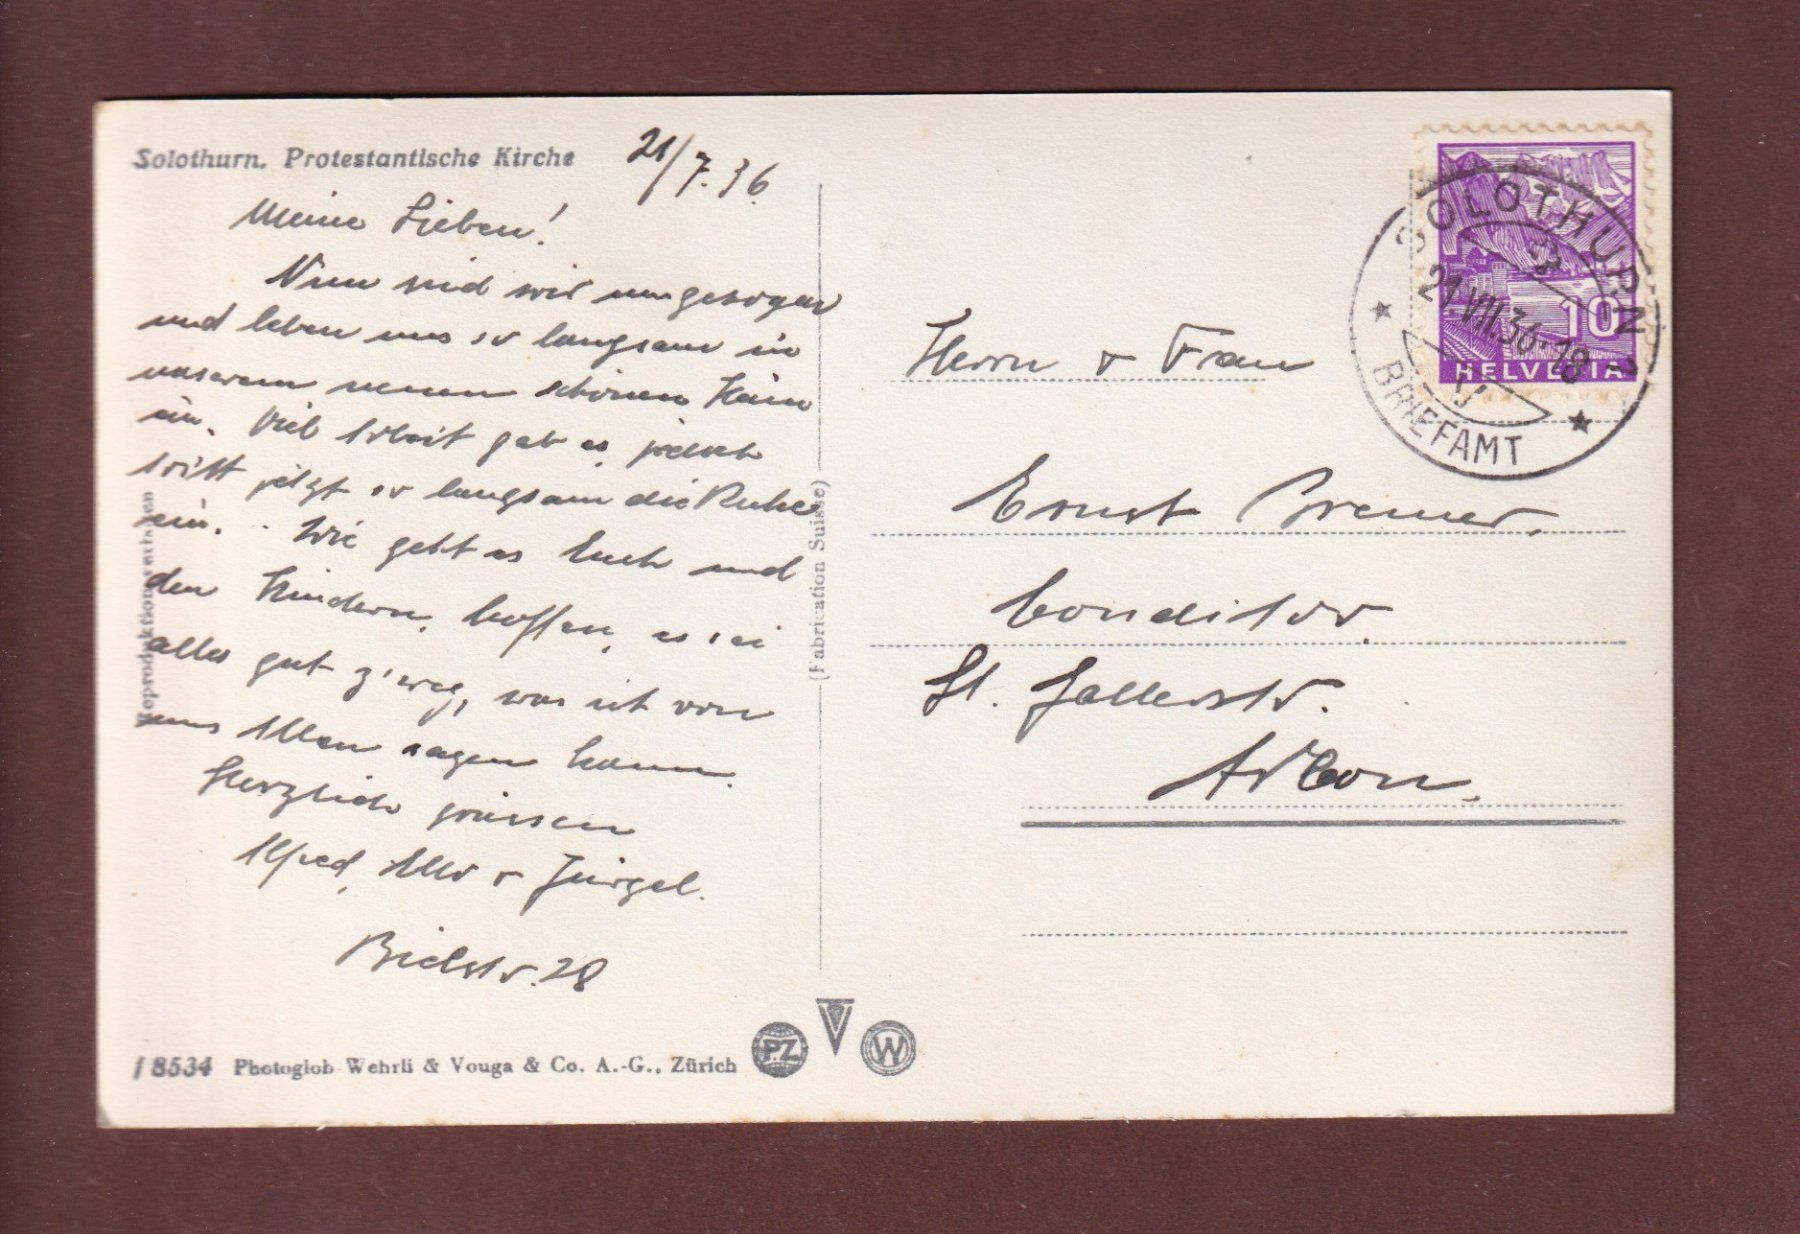 Solothurn. Protestantische Kirche
21/7.36.
Meine Lieben!
Nun sind wir umgezogen
und leben uns so langsam in
unserem neuen schönen Heim
ein. Viel Arbeit gab es, jedoch
tritt jetzt so langsam die Ruhe
ein. Wie geht es Euch und
den Kindern, hoffen, es sei
alles gut z'weg, was ich von
uns Allen sagen kann.
Herzlich grüssen
Alfred, v Jürgel.
Bielstr. 28
Reproduktion verboten
(Fabrication Suisse)
18534 Photoglob-Wehrli & Vouga & Co. A.-G., Zürich
PZ V W
SOLOTHURN 2
21.VII.36-18
BRIEFAMT
10
HELVETIA
Herrn v Frau
Ernst Bremer,
Conditor.
St. Gallerstr.
Arbon.